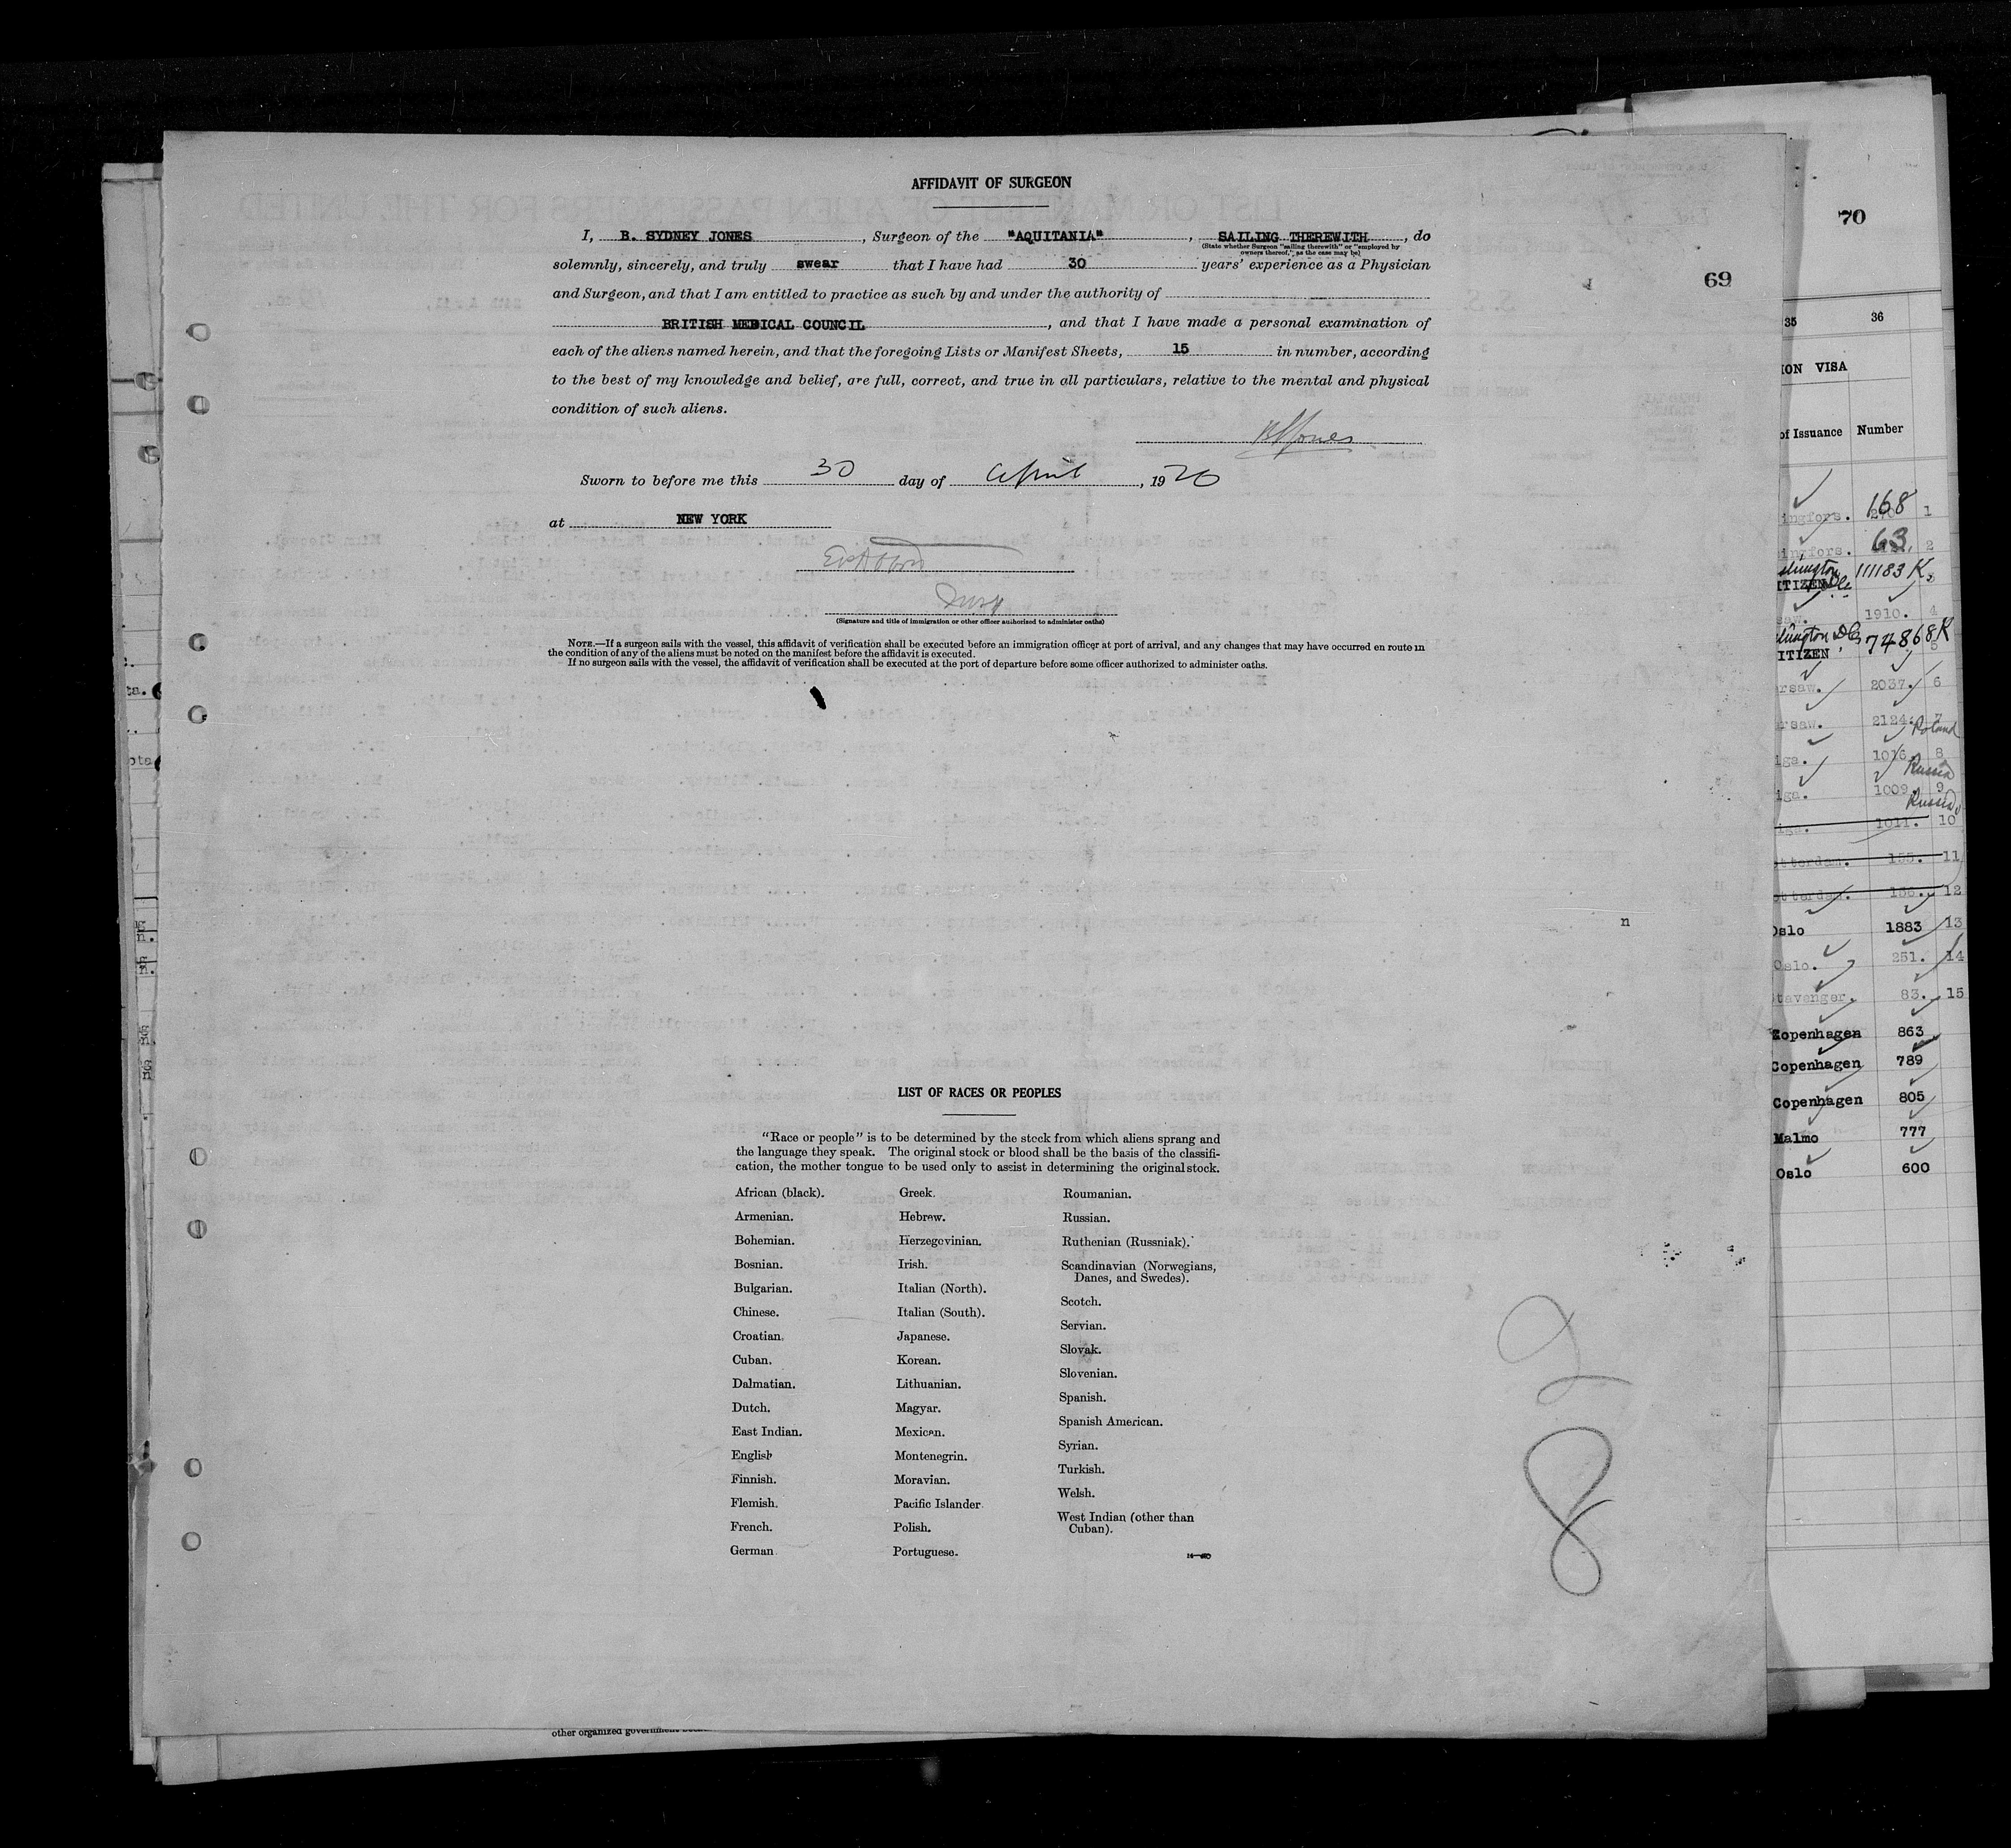 AFFIDAVIT OF SURGEON
I, B. SYDNEY JONES, Surgeon of the "AQUITANIA", SAILING THEREWITH, do
(State whether Surgeon "sailing therewith" or "employed by
owners thereof," as the case may be)
solemnly, sincerely, and truly swear that I have had 30 years' experience as a Physician
and Surgeon, and that I am entitled to practice as such by and under the authority of
BRITISH MEDICAL COUNCIL, and that I have made a personal examination of
each of the aliens named herein, and that the foregoing Lists or Manifest Sheets, 15 in number, according
to the best of my knowledge and belief, are full, correct, and true in all particulars, relative to the mental and physical
condition of such aliens.
Sworn to before me this 30 day of April, 1920
at NEW YORK
(Signature and title of immigration or other officer authorized to administer oaths)
NOTE.—If a surgeon sails with the vessel, this affidavit of verification shall be executed before an immigration officer at port of arrival, and any changes that may have occurred en route in
the condition of any of the aliens must be noted on the manifest before the affidavit is executed.
If no surgeon sails with the vessel, the affidavit of verification shall be executed at the port of departure before some officer authorized to administer oaths.
69
LIST OF RACES OR PEOPLES
"Race or people" is to be determined by the stock from which aliens sprang and
the language they speak. The original stock or blood shall be the basis of the classifi-
cation, the mother tongue to be used only to assist in determining the original stock.
African (black).
Armenian.
Bohemian.
Bosnian.
Bulgarian.
Chinese.
Croatian.
Cuban.
Dalmatian.
Dutch.
East Indian.
English
Finnish.
Flemish.
French.
German.
Greek.
Hebrew.
Herzegovinian.
Irish.
Italian (North).
Italian (South).
Japanese.
Korean.
Lithuanian.
Magyar.
Mexican.
Montenegrin.
Moravian.
Pacific Islander.
Polish.
Portuguese.
Roumanian.
Russian.
Ruthenian (Russniak).
Scandinavian (Norwegians,
Danes, and Swedes).
Scotch.
Servian.
Slovak.
Slovenian.
Spanish.
Spanish American.
Syrian.
Turkish.
Welsh.
West Indian (other than
Cuban).
other organized government
70
35 36
ION VISA
of Issuance Number
ingfors. 168 1
ingfors. 63 2
ITIZEN 111183 K 3
1910. 4
ITIZEN 74868 K 5
rsaw. 2037. 6
rsaw. 2124. 7
Poland
iga. 1016. 8
Russia
iga. 1009. 9
Russia
iga. 1011. 10
otterdam. 155. 11
otterdam. 156. 12
Oslo 1883 13
Oslo. 251. 14
tavenger. 83. 15
Copenhagen 863
Copenhagen 789
Copenhagen 805
Malmo 777
Oslo 600